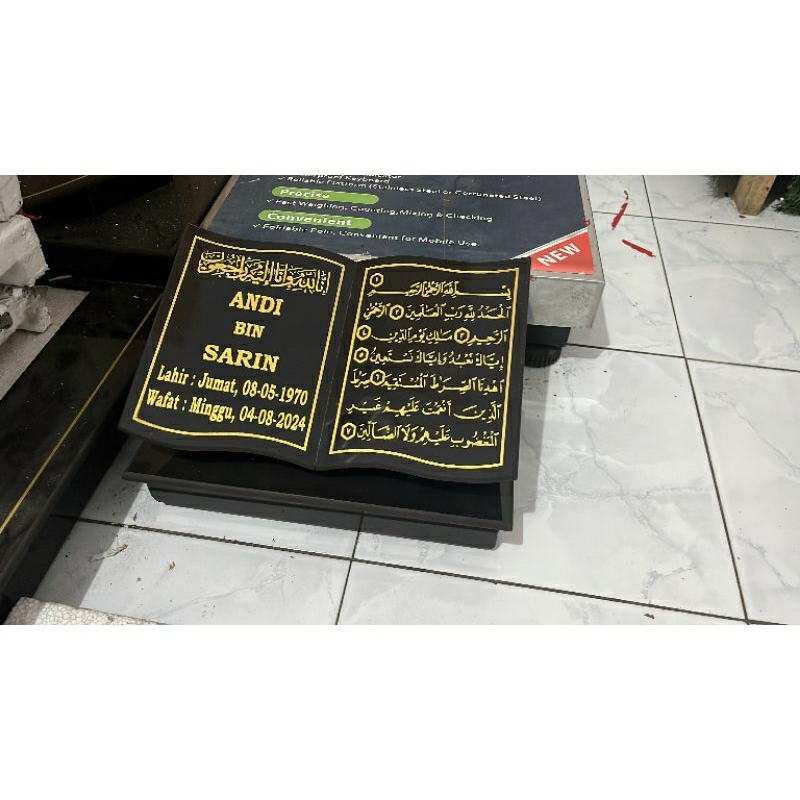 ✓ Reliable Platform (Stainless Steel or Corrunated Steel)
Precise
✓ Fast Weighing, Counting, Mixing & Checking
Convenient
✓ Foldable Pole, Convenient for Mobile Use.
NEW
إنا لله وإنا إليه راجعون
ANDI
BIN
SARIN
Lahir : Jumat, 08-05-1970
Wafat : Minggu, 04-08-2024
١
بِسْمِ اللهِ الرَّحْمٰنِ الرَّحِيْمِ
اَلْحَمْدُ لِلّٰهِ رَبِّ الْعَالَمِيْنَ ٢ اَلرَّحْمٰنِ
الرَّحِيْمِ ٣ مَالِكِ يَوْمِ الدِّيْنِ ٤
إِيَّاكَ نَعْبُدُ وَإِيَّاكَ نَسْتَعِيْنُ ٥
اِهْدِنَا الصِّرَاطَ الْمُسْتَقِيْمَ ٦ صِرَاطَ
الَّذِيْنَ أَنْعَمْتَ عَلَيْهِمْ غَيْرِ
الْمَغْضُوْبِ عَلَيْهِمْ وَلَا الضَّالِّيْنَ ٧